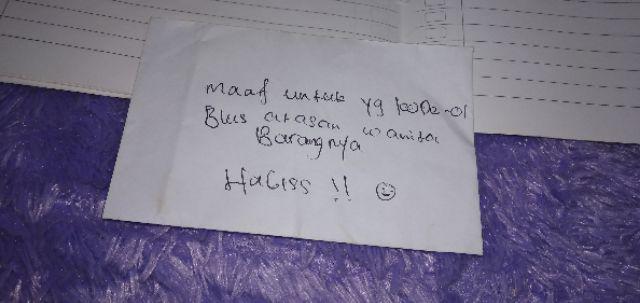 Maaf untuk yg kode-01
Blus atasan wanita
Barangnya
Habiss !! ☺